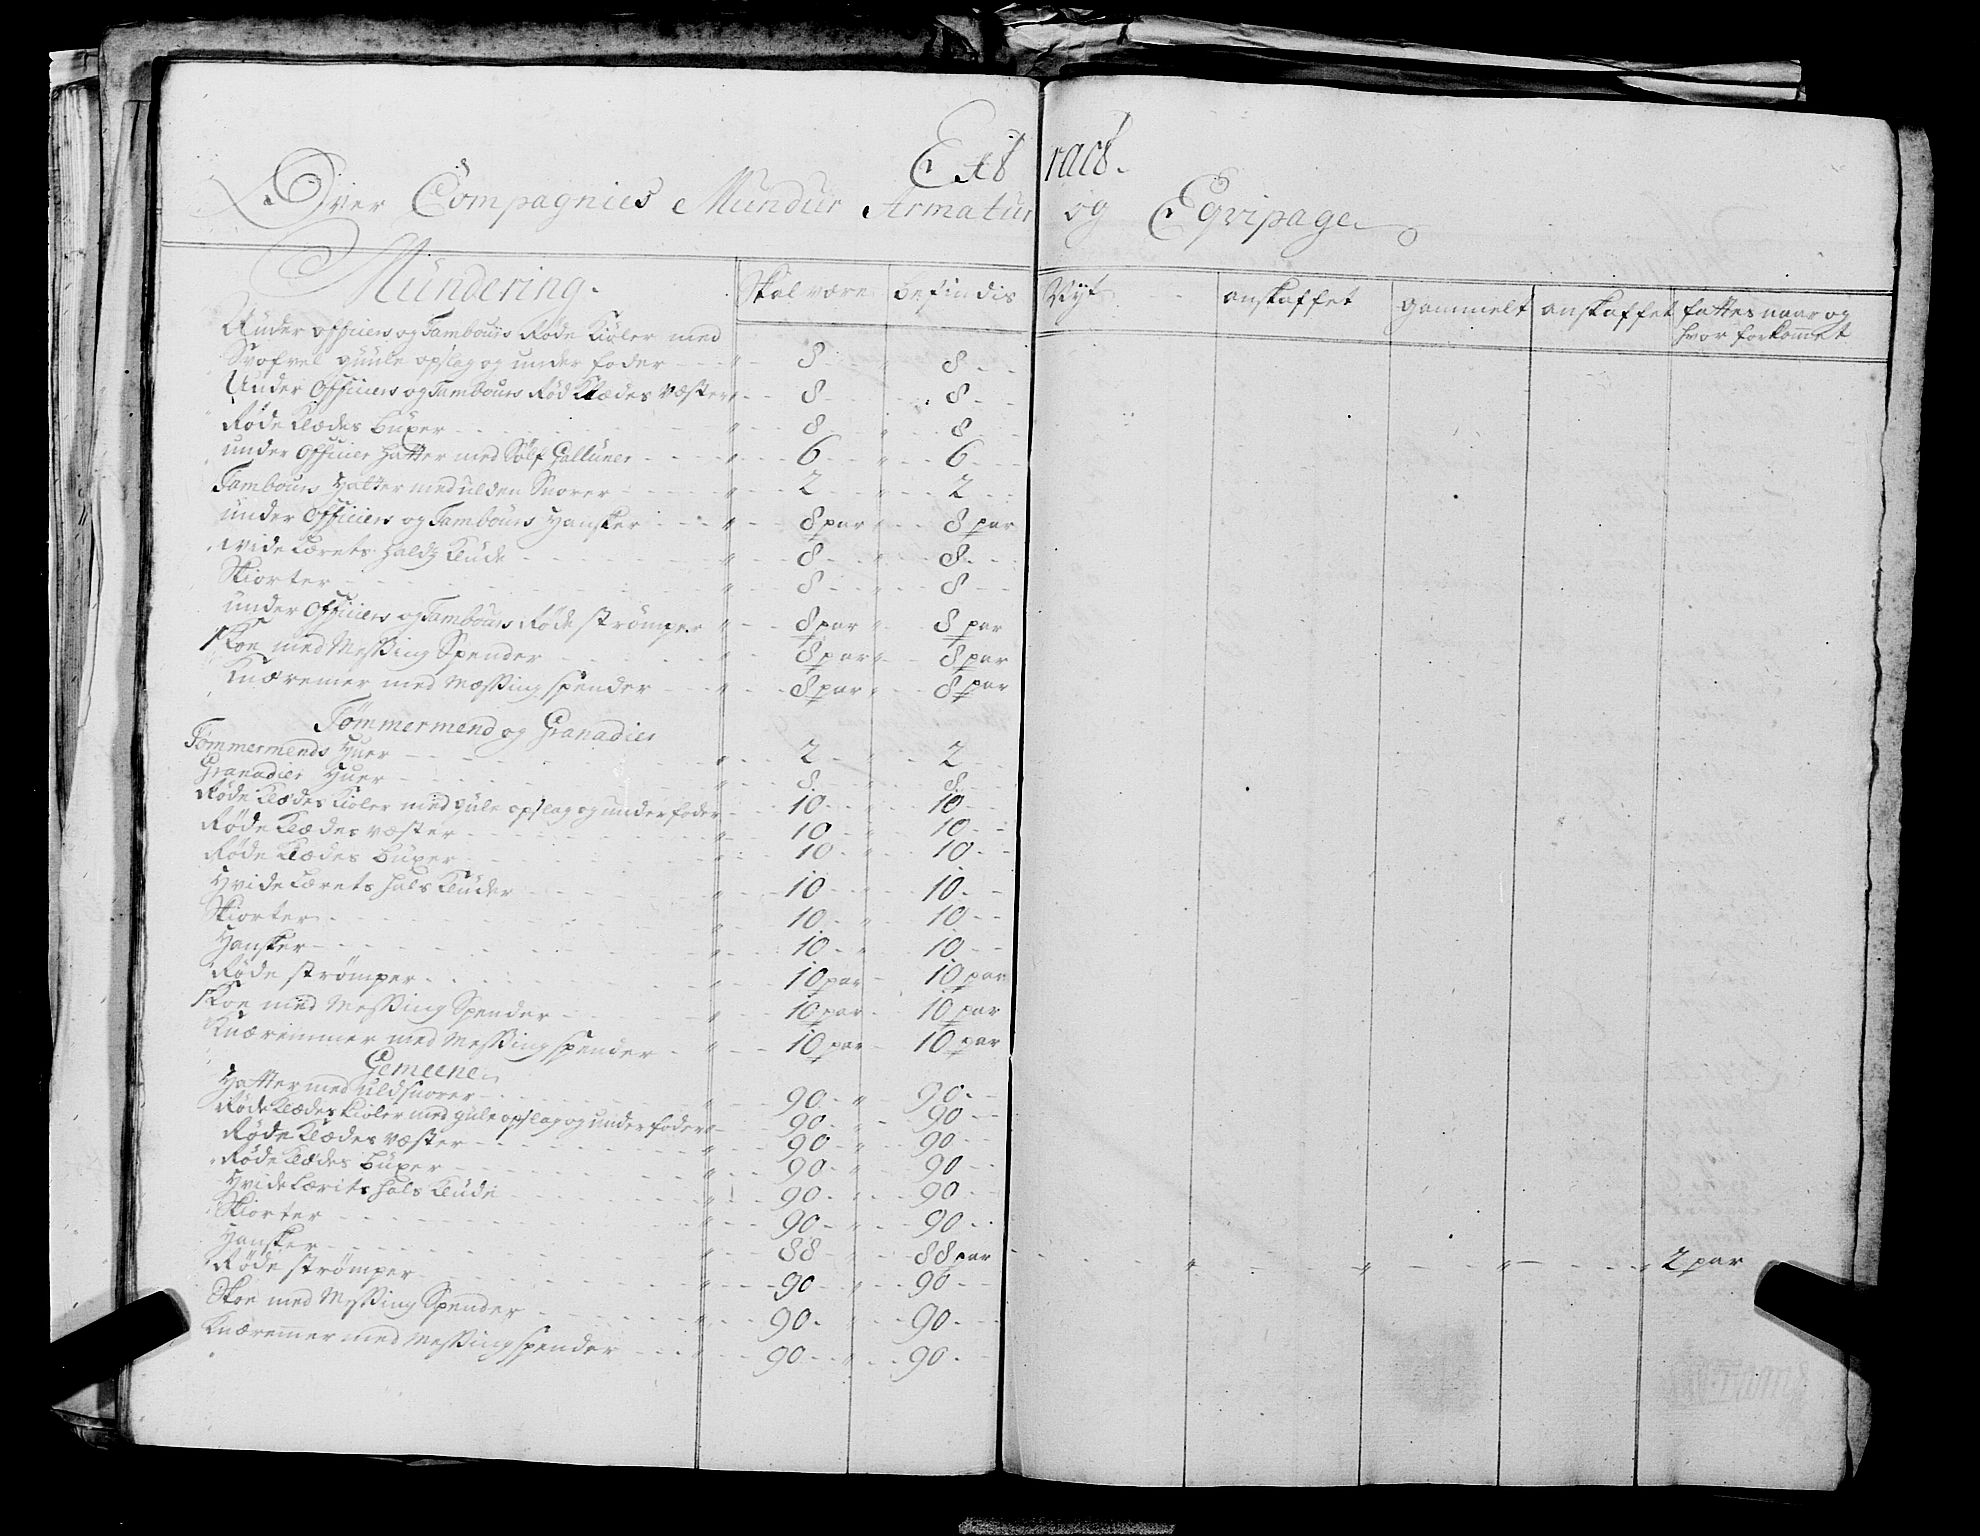 Extract.
Over Compagnies Mundur Armatur og Eqvipage
Mundering. Skal være befindis Nyt anskaffet gammelt anskaffet fattes naar og
hvor forkommet
Under officiers og Tambours Røde Kioler med
Svofvel guule opslag og under foder 8 8
Under Officiers og Tambours Rød Klædes Væster 8 8
Røde Klædes Buxer 8 8
under Officier Hatter med Sølf Galluner 6 6
Tambours Hatter med ulden Snorer 2 2
under Officiers og Tambours Hansker 8 par 8 par
Hvide Lærets Haldz Klude 8 8
Skiorter 8 8
under Officiers og Tambours Røde strømper 8 par 8 par
Skoe med Messing Spender 8 par 8 par
Knæremer med Mæssing spender 8 par 8 par
Tømmermend og Granadier
Tømmermends Huer 2 2
Granadier Huer 8 8
Røde Klædes Kioler med gule opslag og under foder 10 10
Røde Klædes væster 10 10
Røde Klædes Buxer 10 10
Hvide Lærets hals Klüder 10 10
Skiorter 10 10
Hansker 10 10
Røde strømper 10 par 10 par
Skoe med Messing Spender 10 par 10 par
Knæremmer med Messing spender 10 par 10 par
Gemeene
Hatter med uldsnorer 90 90
Røde Klædes Kioler med gule opslag og under foder 90 90
Røde Klædes væster 90 90
Røde Klædes Buxer 90 90
Hvide Lærits hals Klüde 90 90
Skiorter 90 90
Hansker 88 88 par 2 par
Røde strømper 90 90
Skoe med Messing Spender 90 90
Knæremer med Messing spender 90 90